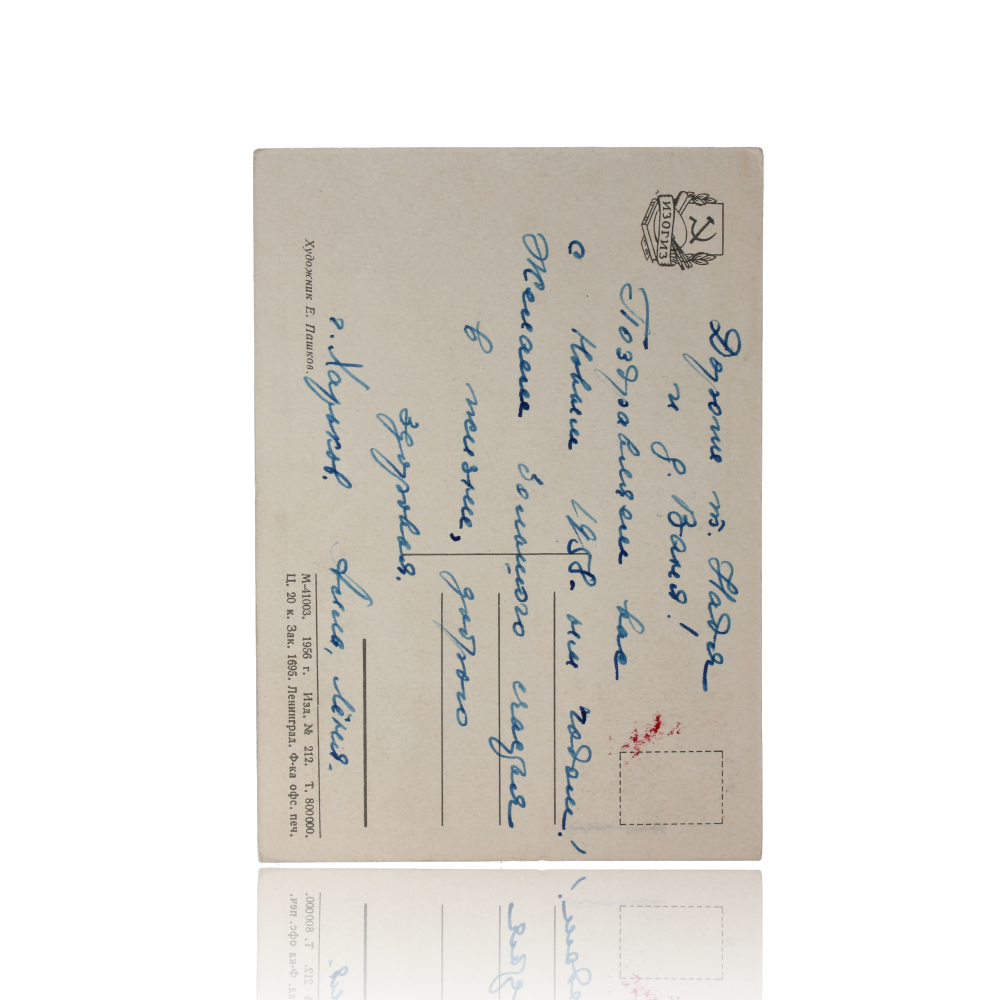 ИЗОГИЗ
Дорогие т. Надя
и д. Ваня!
Поздравляем вас
с Новым 1958-ым годом!
Желаем большого счастья
в жизни, доброго
здоровья.
г. Харьков. Лёня.
Художник Е. Пашков.
М-41003. 1956 г. Изд. № 212. Т. 800000.
Ц. 20 к. Зак. 1695. Ленинград. Ф-ка офс. печ.